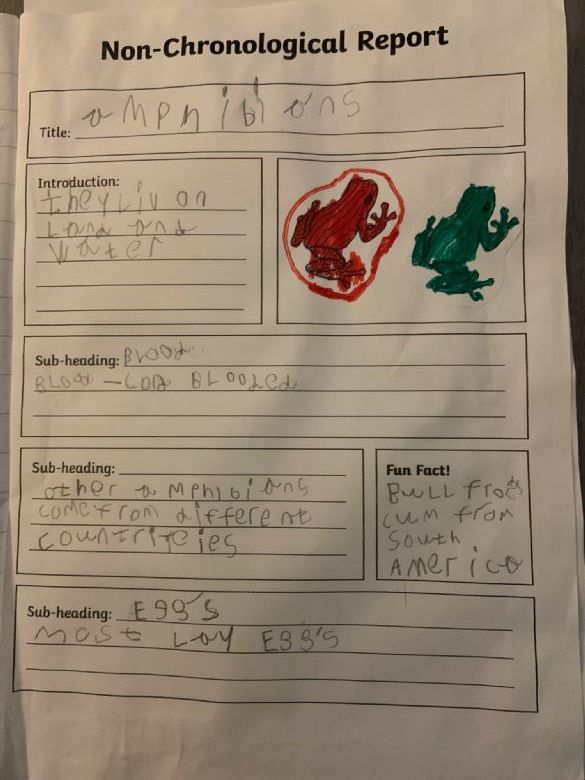 Non-Chronological Report
Title: amphibians
Introduction:
they Liv on
Land and
Water
Sub-heading: Blood
Blood - Cold BLooded
Sub-heading:
other amphibians
come from different
countriteies
Fun Fact!
BuLL frogs
cum from
South
America
Sub-heading: Egg's
most Lay Egg's